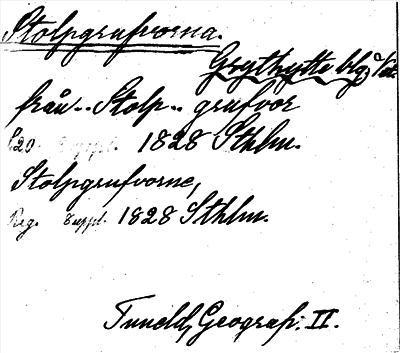 Stolpgrufvorna.
Grythytte blg
från.. Stolp.. grufvor
1828 Sthlm.
Stolpgrufvorne,
Reg. Suppl. 1828 Sthlm.
Tuneld, Geograf. II.